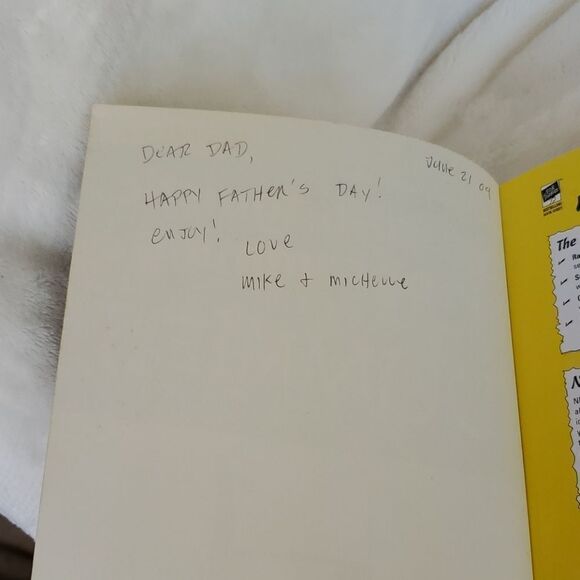 DEAR DAD,
June 21 09
HAPPY FATHER'S DAY!
ENJOY!
LOVE
MIKE + MICHELLE
The